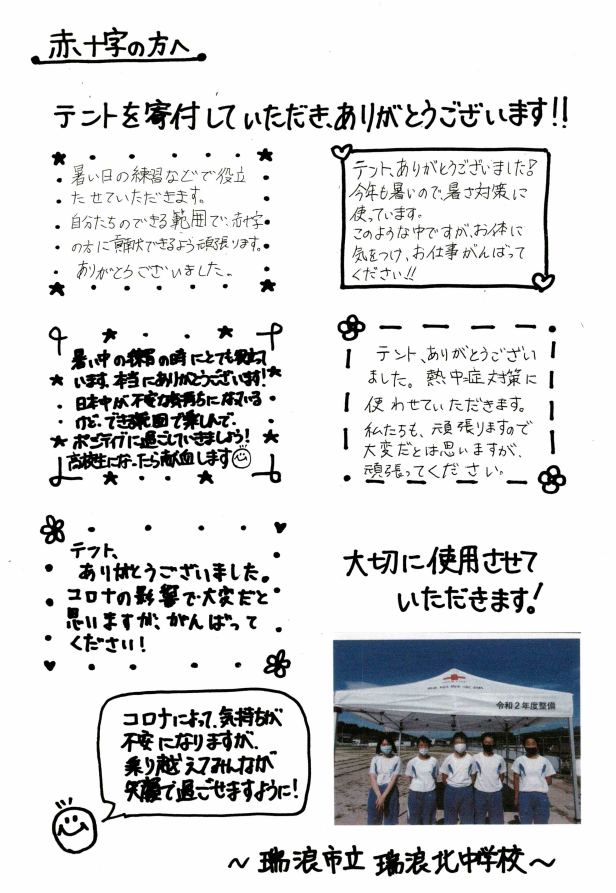 赤十字の方へ
テントを寄付していただき、ありがとうございます!!
暑い日の練習などで役立
たせていただきます。
自分たちのできる範囲で、赤十字
の方に貢献できるよう頑張ります。
ありがとうございました。
テント、ありがとうございました!
今年も暑いので、暑さ対策に
使っています。
このような中ですが、お体に
気をつけ、お仕事がんばって
ください!!
暑い中の練習の時にとても役立って
います。本当にありがとうございます!
日本中が不安な気持ちになっている
けど、できる範囲で楽しんで、
ポジティブに過ごしていきましょう!
高校生になったら献血します
テント、ありがとうござい
ました。熱中症対策に
使わせていただきます。
私たちも、頑張りますので
大変だとは思いますが、
頑張ってください。
テント、
ありがとうございました。
コロナの影響で大変だと
思いますが、がんばって
ください!
大切に使用させて
いただきます!
令和2年度整備
コロナによって、気持ちが
不安になりますが、
乗り越えてみんなが
笑顔で過ごせますように!
～瑞浪市立 瑞浪北中学校～